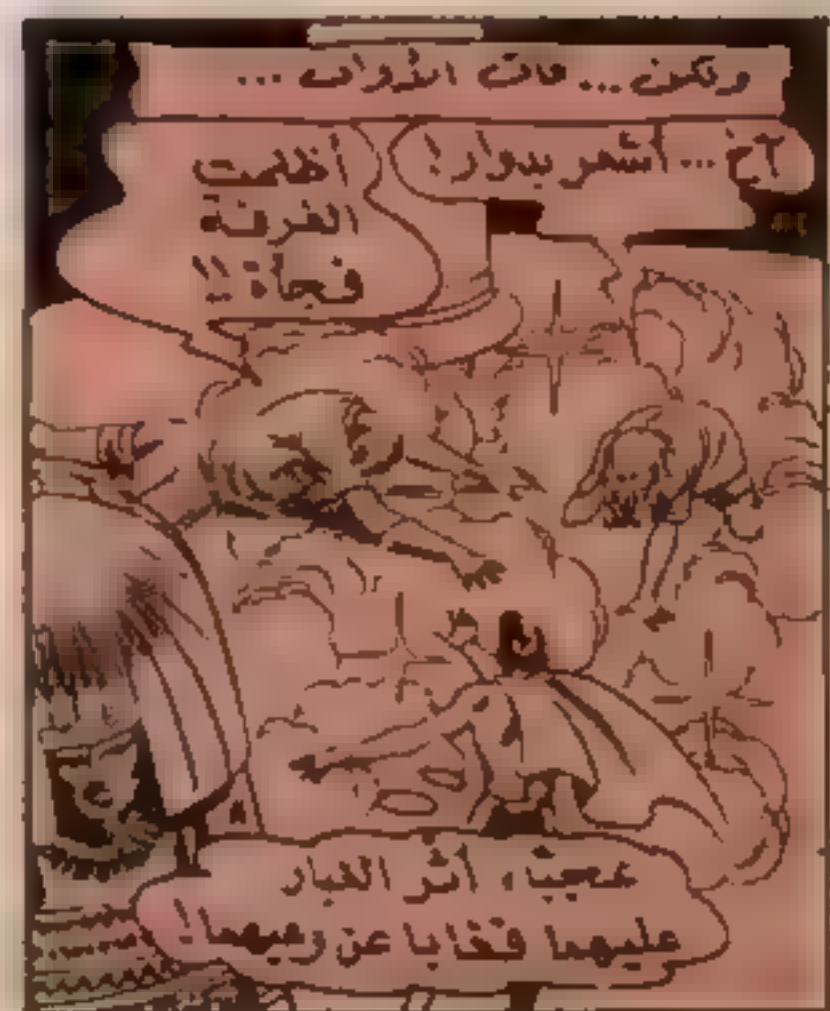 ولكن ... فات الأوان ...
آخ ... أشعر بدوار!
أظلمت
الغرفة
فجأة !!
عجبًا، أثر الغبار
عليهما فغابا عن وعيهما!